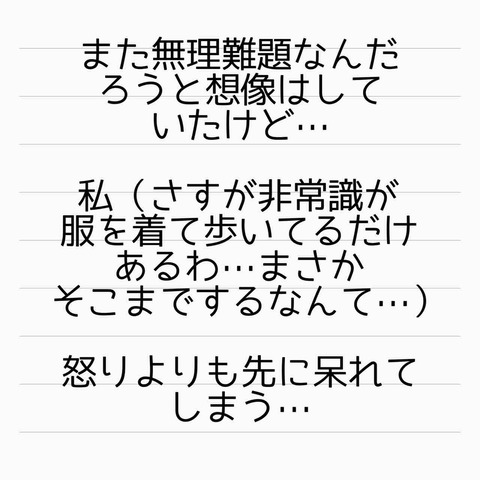 また無理難題なんだ
ろうと想像はして
いたけど…
私（さすが非常識が
服を着て歩いてるだけ
あるわ…まさか
そこまでするなんて…）
怒りよりも先に呆れて
しまう…